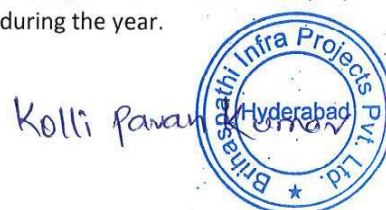 during the year.
Kolli Pavan Kumar
Brihaspathi Infra Projects Pvt. Ltd.
Hyderabad